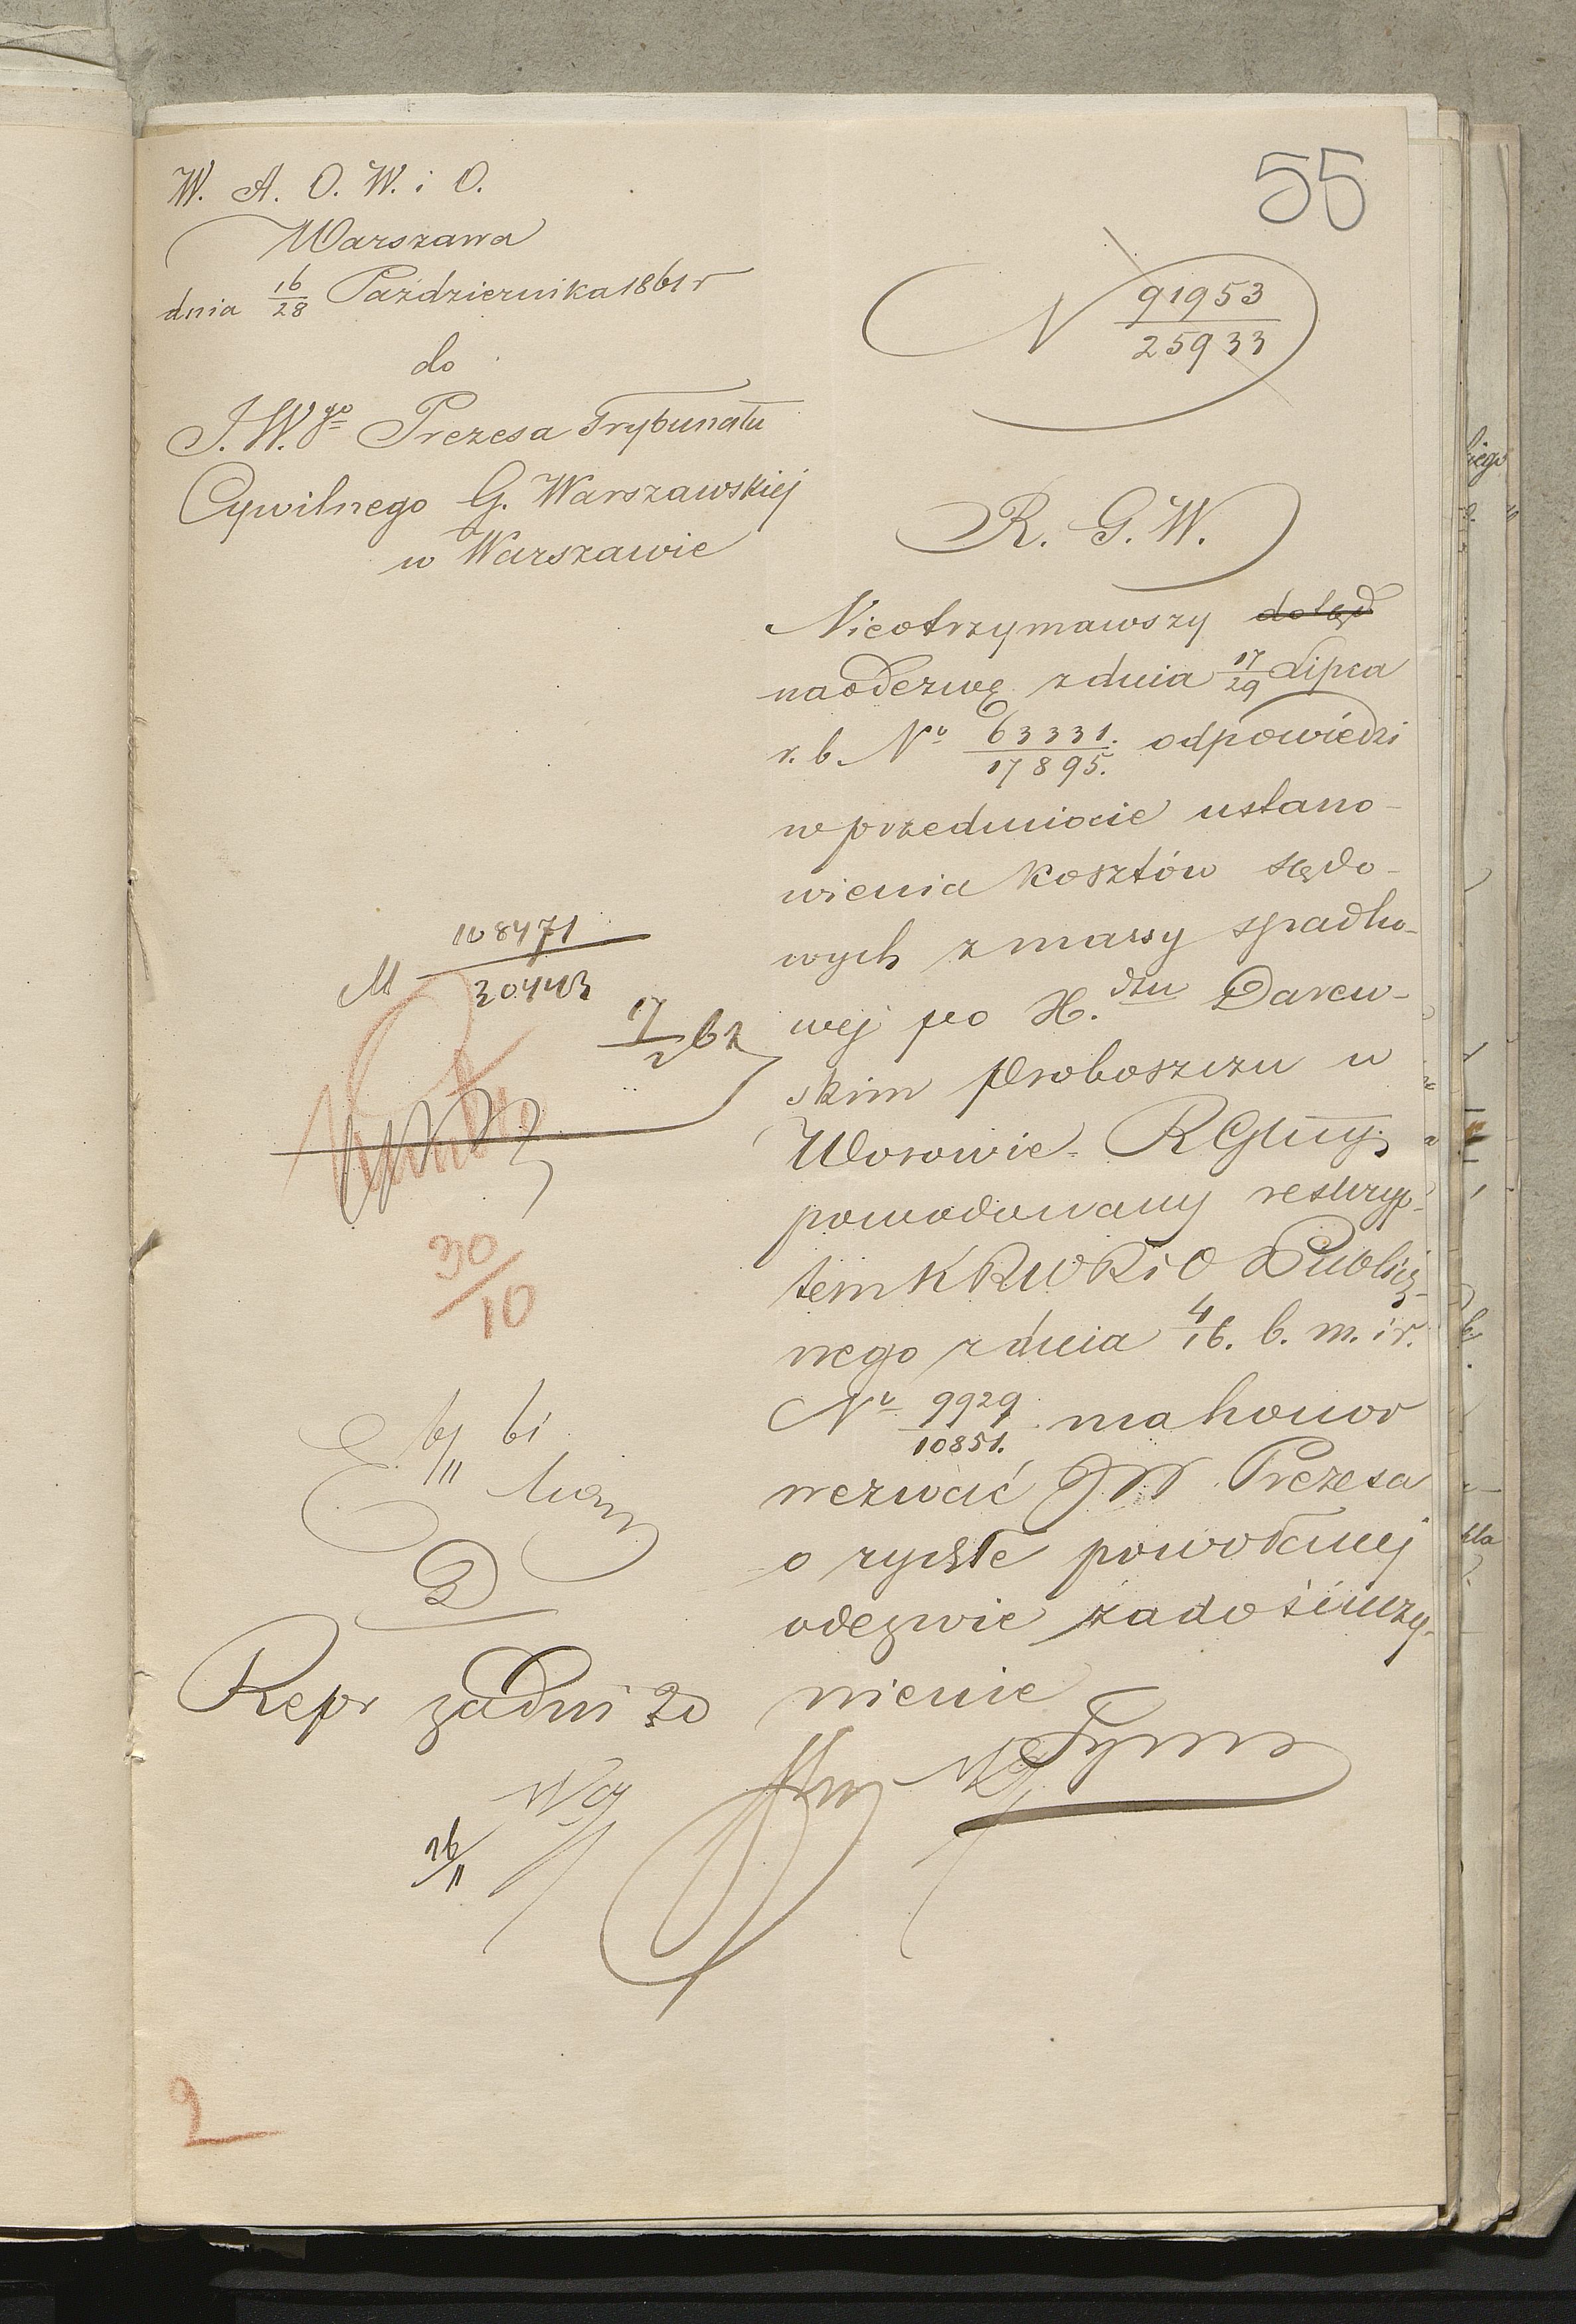 55
W. A. O. W. i O.
Warszawa
dnia 16/28 Października 1861 r
do
J. W.go Prezesa Trybunału
Cywilnego G. Warszawskiej
w Warszawie
N 91953/25933
R. G. W.
Nieotrzymawszy dotąd
na odezwę z dnia 17/29 Lipca
r. b. No 63331./17895. odpowiedzi
w przedmiocie ustano-
wienia kosztów sądo-
wych z massy spadko-
wej po X.dzu Darew-
skim Proboszczu w
Worowie. RGlny
powodowany reskryp-
tem KRWRiO Publicz-
nego z dnia 4/16. b. m. i r.
No 9929/10851. ma honor
wezwać JW Prezesa
o rychłe powołanej
odezwie zadośćuczy-
nienie
108471/30443
17/2 62
30/10
Repr za dni 20
26/11
2